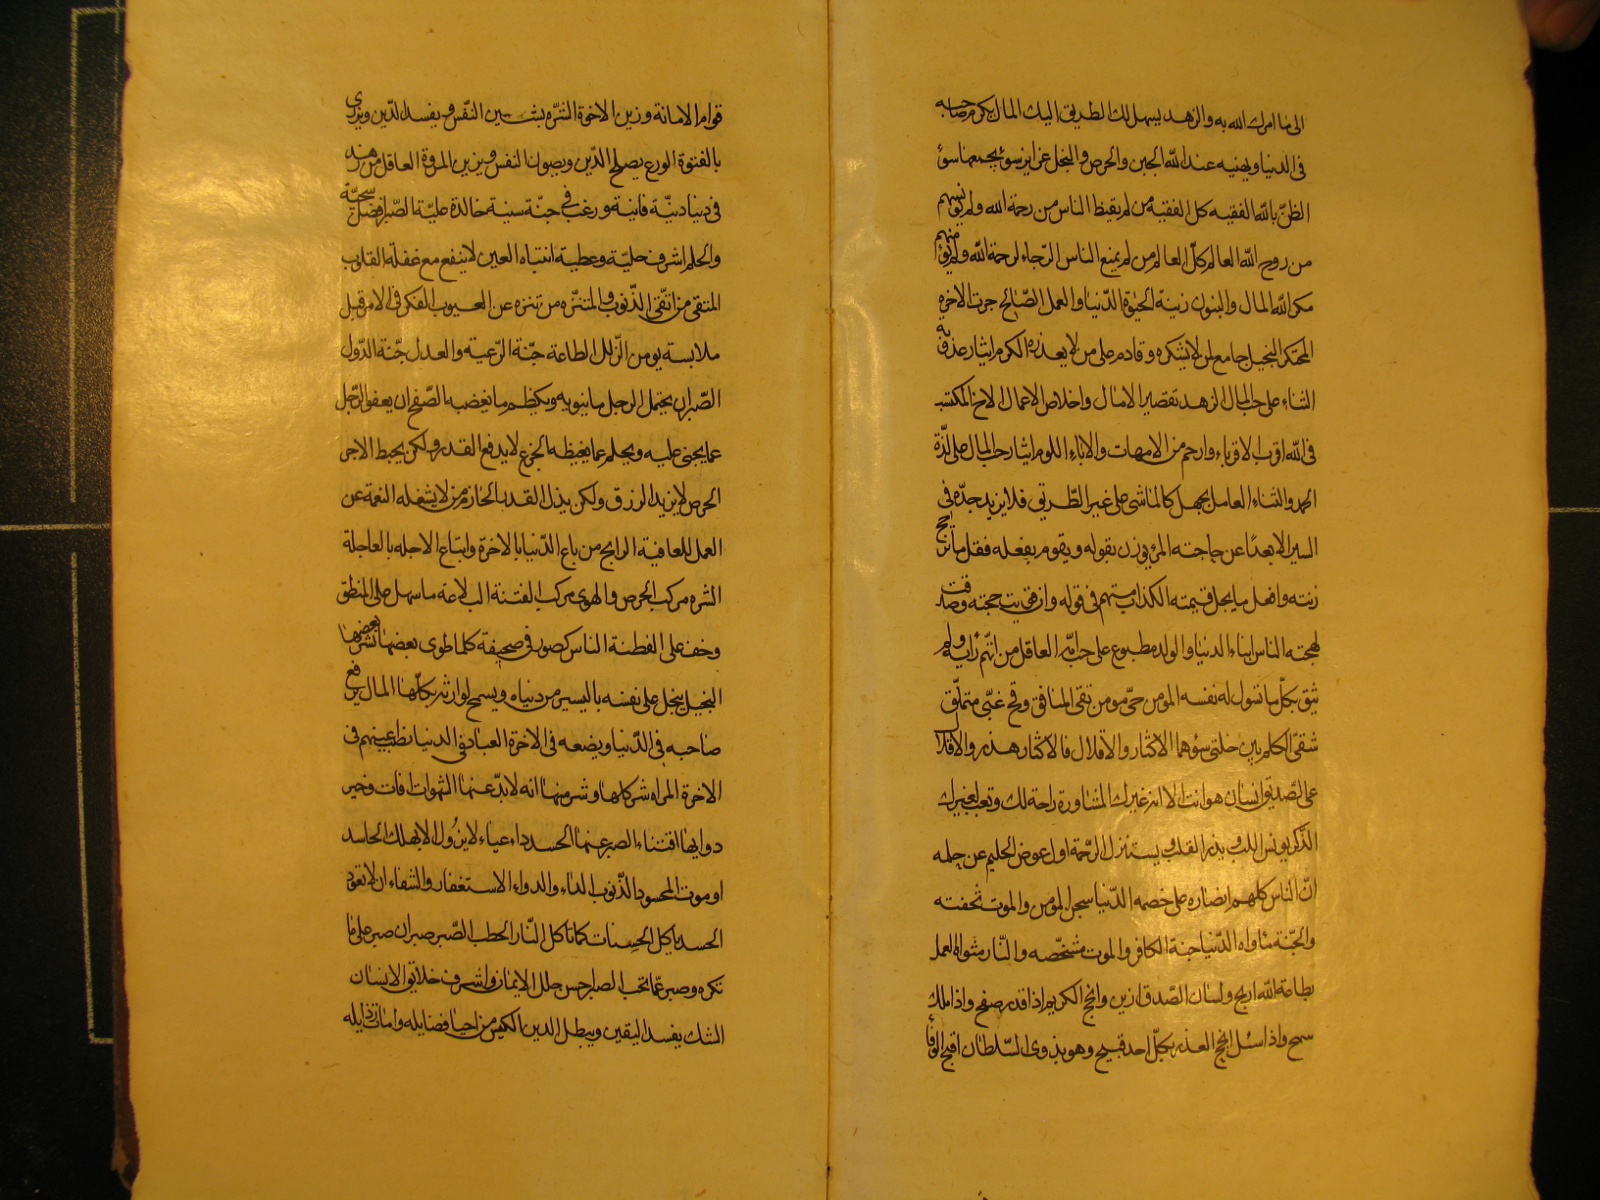 الى ما امرك الله به والزهد يسهل لك الطريق اليك المال يكرم صاحبه
فى الدنيا ويهينه عند الله الجبن والحرص والبخل غرايز سوء يجمعها سوء
الظنّ بالله الفقيه كل الفقيه من لم يقنط الناس من رحمة الله ولم يؤيسهم
من روح الله العالم كلّ العالم من لم يمنع الناس الرّجاء لرحمة الله ولم يؤمنهم
مكر الله المال والبنون زينة الحيوة الدّنيا والعمل الصّالح حرث الاخره
المحتكر البخيل جامع لمن لا يشكره وقادم على من لا يعذره الكرم ايثار عذوبة
الثناء على حب المال الزهد تقصير الامال واخلاص الاعمال الاخ المكتسب
فى الله اقرب الاقرباء وارحم من الامهات والاباء اللوم ايثار حب المال على لذّة
الحمد والثناء العامل بجهل كالماشى على غير الطّريق فلا يزيده جدّه فى
السير الا بعدًا عن حاجته المرء يوزن بقوله ويقوم بفعله فقل ما ترجح
زنته وافعل ما يجل قيمته الكذاب متهم فى قوله وان قويت حجته وصدقت
لهجته الناس ابناء الدنيا والولد مطبوع على حب امّه العاقل من اتّهم رأيه ولم
يثق بكلّ ما تسول له نفسه المؤمن حىّ مومن تقى المنافق وقح غبّى متملّق
شقىّ الكلم بين خلتى سوء هما الاكثار والاقلال فالاكثار هذر والاقلال
عىّ الصّديق انسان هو انت الا انه غيرك المشاورة راحة لك وتعب لغيرك
الذّكر يونس اللب وينير القلب ويستنزل الرّحمة اول عوض الحليم عن حلمه
انّ الناس كلهم انصاره على خصمه الدّنيا سجن المؤمن والموت تحفته
والجنّة مأواه الدّنيا جنة الكافر والموت مشخصه والنّار مثواه العمل
بطاعة الله اربح ولسان الصّدق ازين وانجح الكريم اذا قدر صفح واذا ملك
سمح واذا سئل انجح الغدر بكلّ احد قبيح وهو بذوى السّلطان اقبح الوفا
قوام الامانة وزين الاخوة الشّره يشين النّفس ويفسد الدّين ويزرى
بالفتوة الورع يصلح الدّين ويصون النفس ويزين المروّة العاقل من زهد
فى دنيا دنيّة فانية ورغب فى جنّة سنية خالدة عليّة الصّبر افضل سجيّة
والحلم اشرف حليّة وعطية انتباه العين لا ينفع مع غفلة القلوب
المتقى من اتّقى الذّنوب والمتنزّه من تنزه عن العيوب الفكر فى الامر قبل
ملابسته يومن الزّلل الطاعة جنّة الرّعية والعدل جنّة الدّول
الصّبر ان يحتمل الرجل ما ينوبه ويكظم ما يغضبه الصّفح ان يعفو الرّجل
عما يجنى عليه ويحلم عما يغيظه الجزع لا يدفع القدر ولكن يحبط الاجر
الحرص لا يزيد الرزق ولكن يذل القدر الحازم من لا يشغله النعمة عن
العمل للعافية الرابح من باع الدّنيا بالاخرة وابتاع الاجله بالعاجلة
الشره مركب الحرص والهوى مركب الفتنة البلاغة ما سهل على المنطق
وخف على الفطنة الناس كصور فى صحيفة كلما طوى بعضها نشر بعضها
البخيل يبخل على نفسه باليسير من دنياه ويسمح لوارثه بكلّها المال يرفع
صاحبه فى الدّنيا ويضعه فى الاخرة العباد فى الدنيا نظب عينهم فى
الاخرة المراه شر كلها وشر منها انه لا بدّ عنها الشهوات افات وخير
دوايها اقتناء الصبر عنها الحسد داء عياء لا يزُول الا بهلك الحاسد
او موت المحسود الذّنوب الداء والدواء الاستغفار والشفاء ان لا تعود
الحسد يأكل الحسنات كما تاكل النّار الحطب الصّبر صبران صبر على ما
تكره وصبر عمّا تحب الصبر احسن حلل الايمان واشرف خلائق الانسان
الشك يفسد اليقين ويبطل الدين الكيس من احيا فضايله وامات رذايله